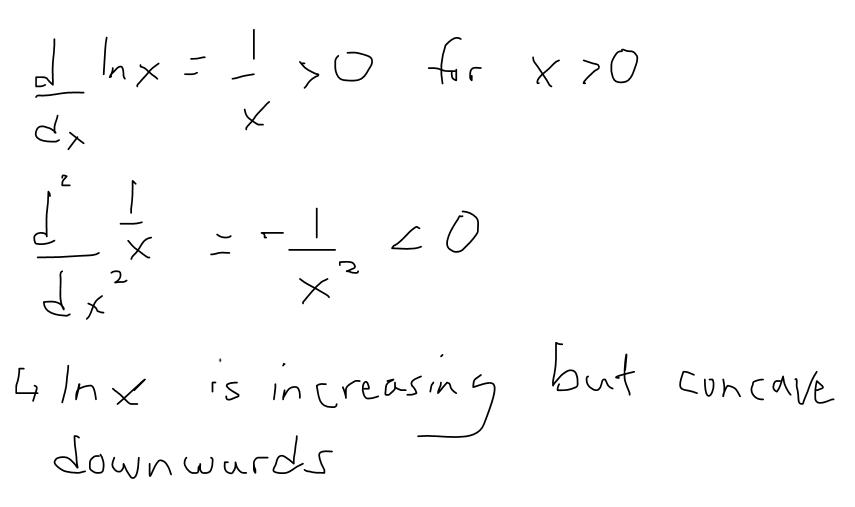 d/dx ln x = 1/x > 0 for x > 0
d²/dx² 1/x = -1/x² < 0
↳ ln x is increasing but concave
downwards